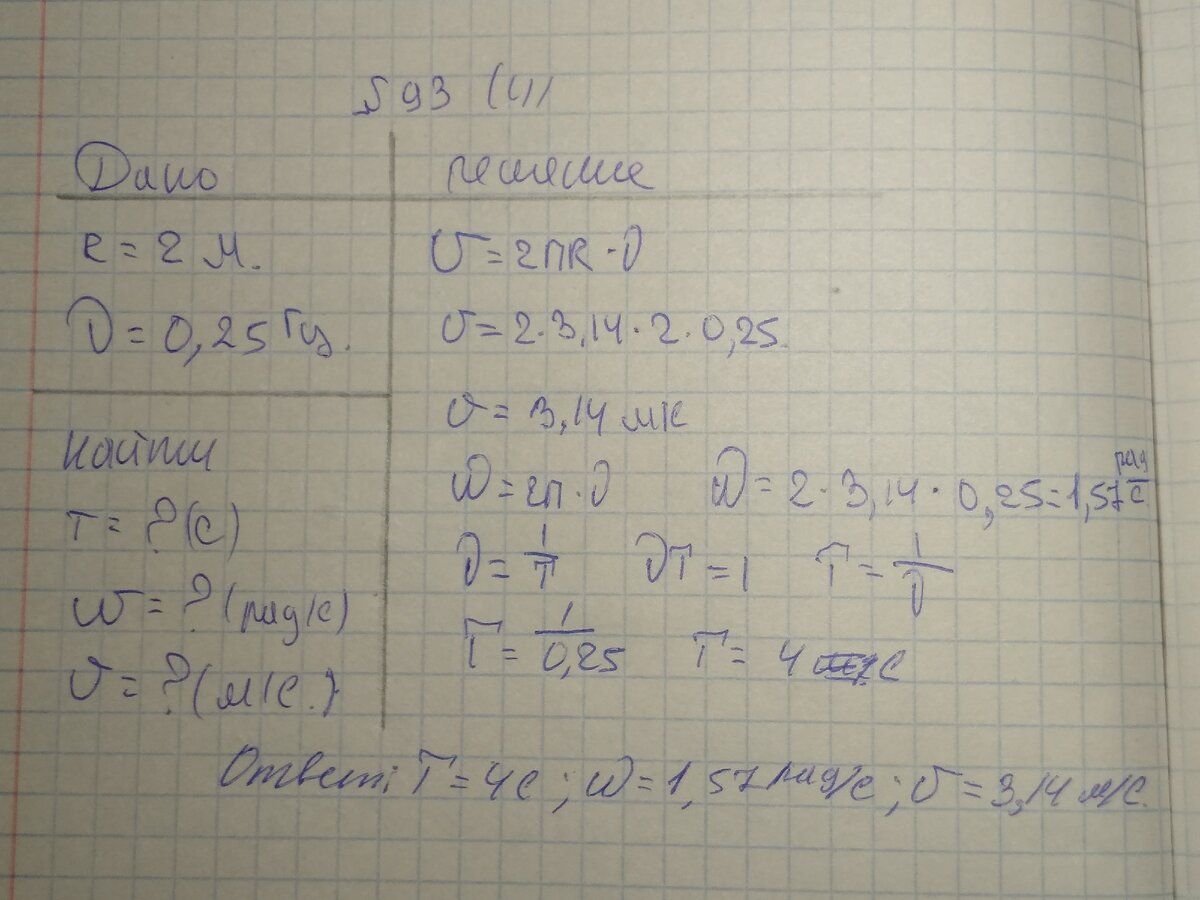 § 93 (4)
Дано
R = 2 м.
ν = 0,25 Гц.
Найти
T = ? (с)
ω = ? (рад/с)
υ = ? (м/с.)
решение
υ = 2πR · ν
υ = 2 · 3,14 · 2 · 0,25.
υ = 3,14 м/с
ω = 2π · ν ω = 2 · 3,14 · 0,25 = 1,57 рад/с
ν = 1/T νT = 1 T = 1/ν
T = 1/0,25 T = 4 с
Ответ: T = 4с ; ω = 1,57 рад/с ; υ = 3,14 м/с.